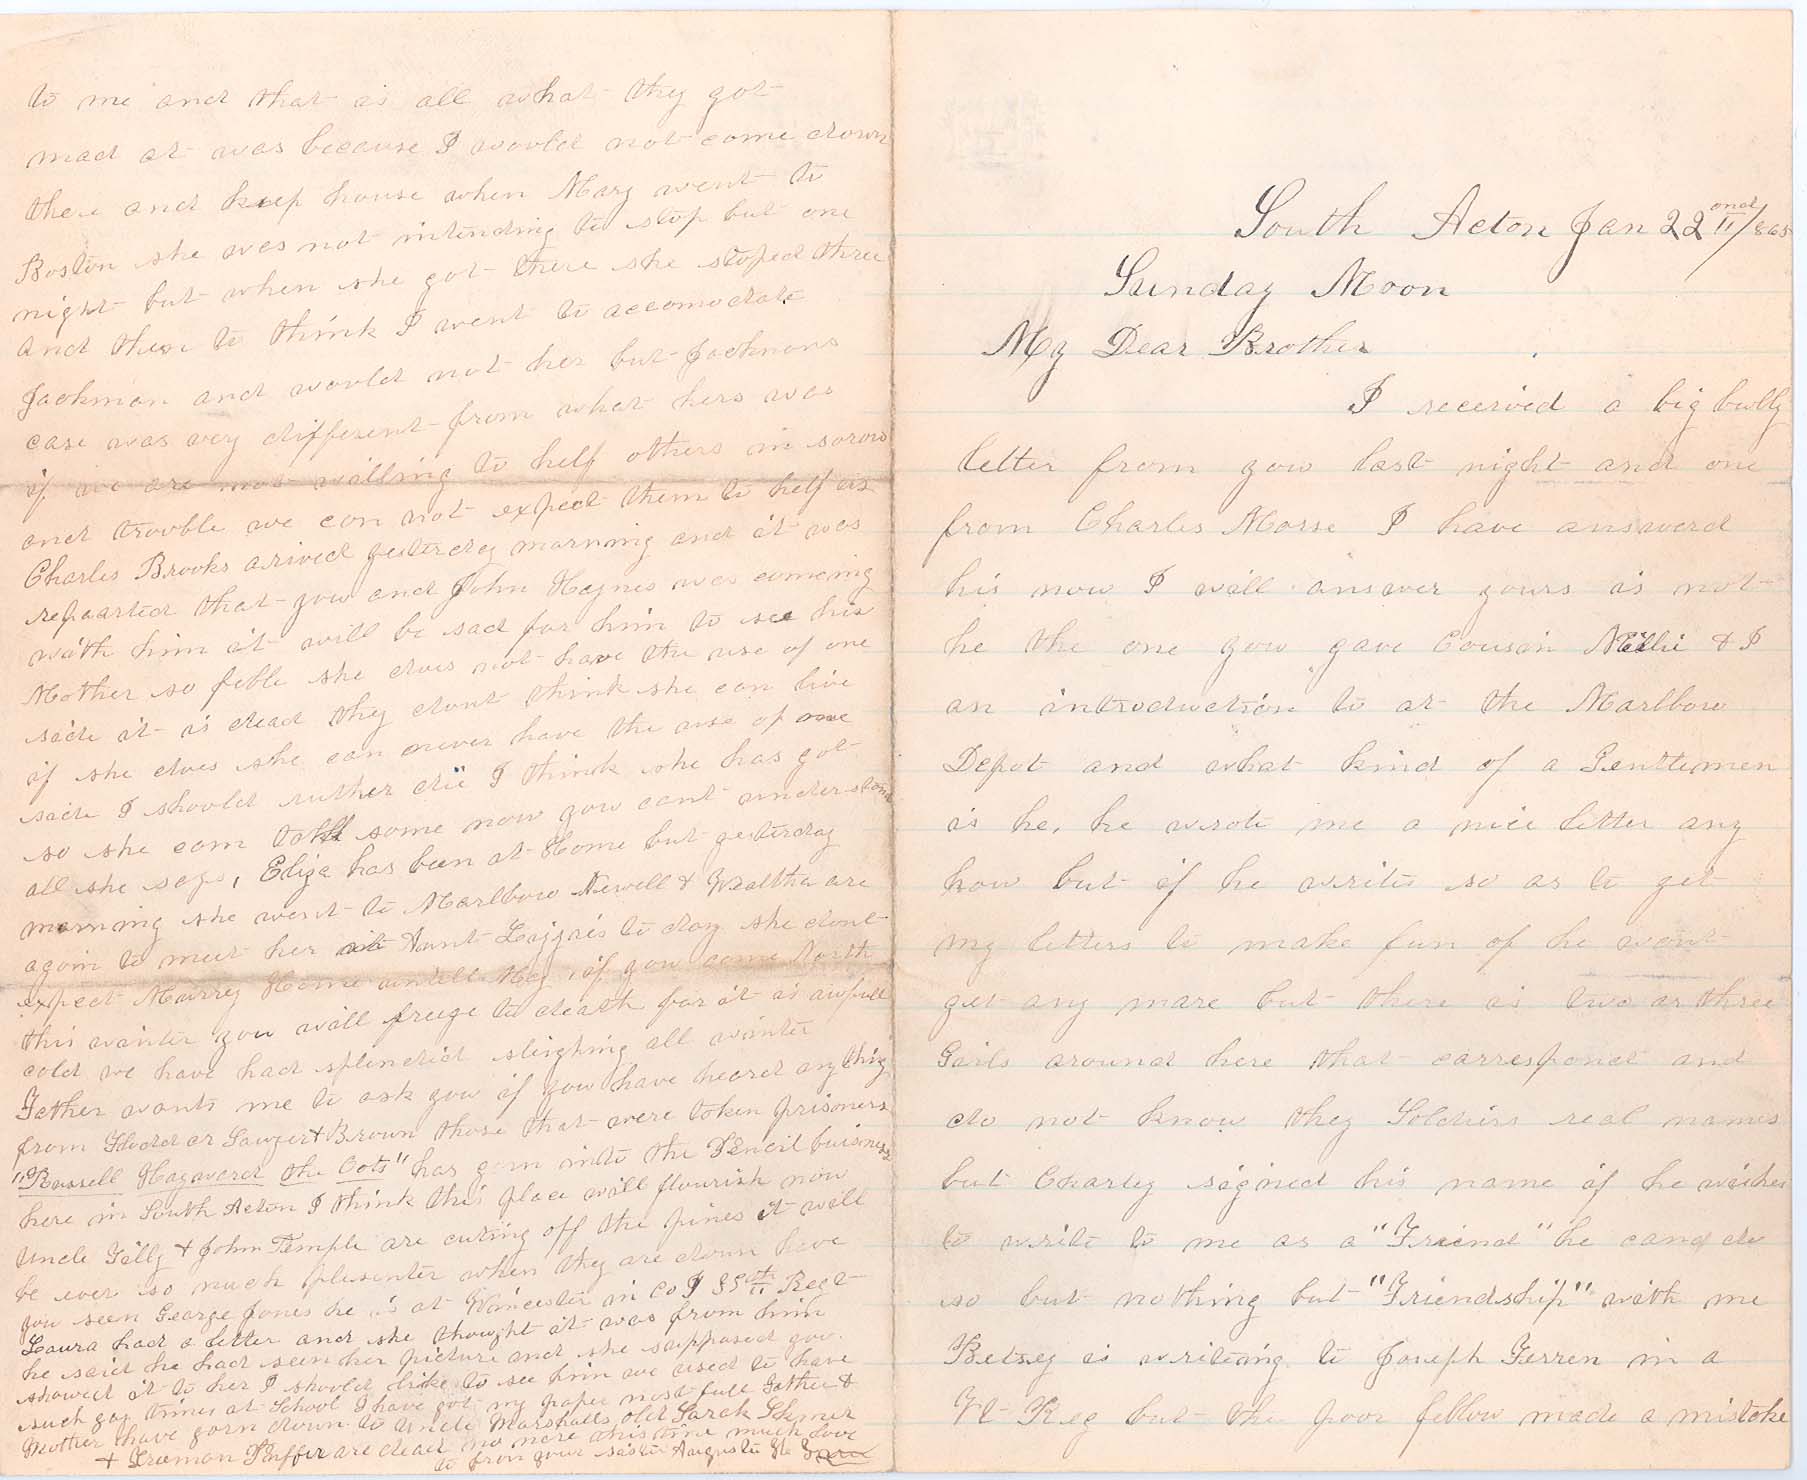 South Acton Jan 22ond /1865
Sunday Moon
My Dear Brother
I received a big bully
letter from you last night and one
from Charles Morse I have answerd
his now I will answer yours is not
he the one you gave Cousin Nellie & I
an introduction to at the Marlboro
Depot and what kind of a Gentlemen
is he, he wrote me a nice letter any
how but if he writes so as to get
my letters to make fun of he wont
get any more but there is two or three
Girls around here that correspond and
do not know they Soldiers real names
but Charley signed his name if he wishes
to write to me as a "Friend" he can do
so but nothing but "Friendship" with me
Betsey is writeing to Joseph Ferren in a
Vt Reg but the poor fellow made a mistake
to me and that is all what they got
mad at was because I would not come down
there and keep house when Mary went to
Boston she was not intending to stop but one
night but when she got there she stoped three
and then to think I went to accomodate
Jackman and would not her but Jackmans
case was very different from what hers was
if we are not willing to help others in sorow
and trouble we can not expect them to help us
Charles Brooks arived yesterday morning and it was
reported that you and John Haynes was comeing
with him it will be sad for him to see his
Mother so feble she does not have the use of one
side it is dead they dont think she can live
if she does she can never have the use of one
side I should ruther die I think she has got
so she can talk some now you cant understand
all she says, Eliza has been at Home but yesterday
morning she went to Marlboro Newell & Wealtha are
again to meet her at Aunt Lizzie's to day she dont
expect Murrey Home untill May, if you come North
this winter you will freeze to death for it is awfull
cold we have had splendid sleighing all winter
Father wants me to ask you if you have heard anything
from Flood or Sawyer & Brown those that were token prisoners
"Russell Haywood the Cots" has gorn into the Pencil buisness
here in South Acton I think this place will flourish now
Uncle Tilly & John Temple are cuting off the pines it will
be ever so much plesenter when they are down have
you seen George Jones he is at Winchester in Co I 35th Regt
Laura had a letter and she thought it was from him
he said he had seen her picture and she supposed you
showed it to her I should like to see him we used to have
such gay times at School I have got my paper most full Father &
Mother have gorn down to Uncle Marshalls, old Sarah Skinner
& Freeman are dead no more this time much love
to from your sister Augusta